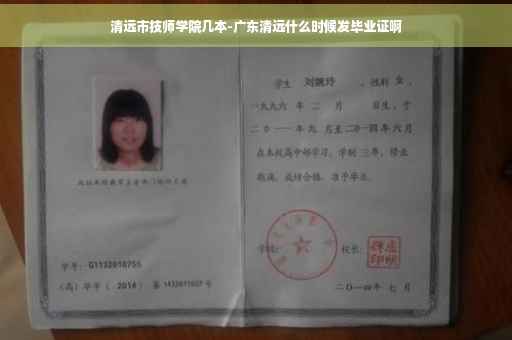 清远市技师学院几本-广东清远什么时候发毕业证啊
学生 刘婉玲 ,性别 女 ,
一九九六 年 二 月 日生,于
二〇一一年九 月至二〇一四年六月
在本校高中部学习,学制 三年,修业
期满,成绩合格,准予毕业。
学号: G1132010755
(高)毕字( 2014 )第 1432011027 号
学校:
校长:
二〇一四年 七 月